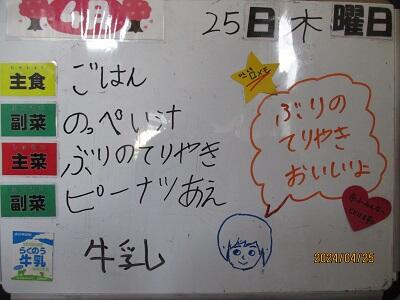 4月
25日木曜日
主食 ごはん
副菜 のっぺい汁
主菜 ぶりのてりやき
副菜 ピーナツあえ
らくのう
牛乳
牛乳
ぶりの
てりやき
おいしいよ
2024/04/25